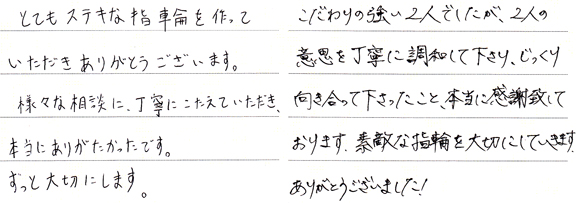 とてもステキな指輪を作って
いただきありがとうございます。
様々な相談に、丁寧にこたえていただき、
本当にありがたかったです。
ずっと大切にします。
こだわりの強い2人でしたが、2人の
意思を丁寧に調和して下さり、じっくり
向き合って下さったこと、本当に感謝致して
おります。素敵な指輪を大切にしていきます。
ありがとうございました!